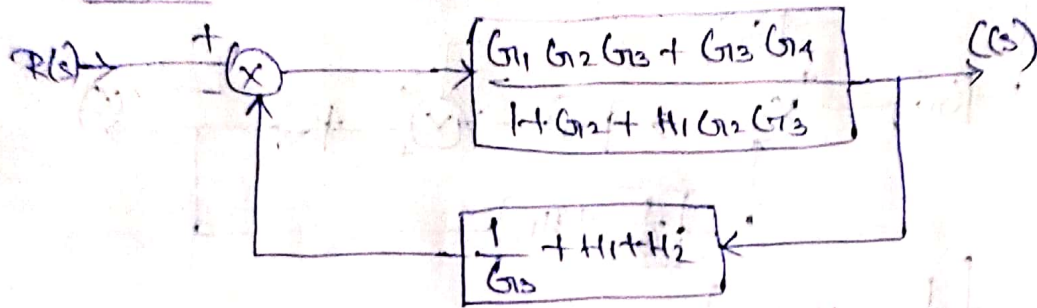 R(s) + - X G1 G2 G3 + G3 G4 C(s)
1+ G2 + H1 G2 G3
1/G3 + H1 + H2